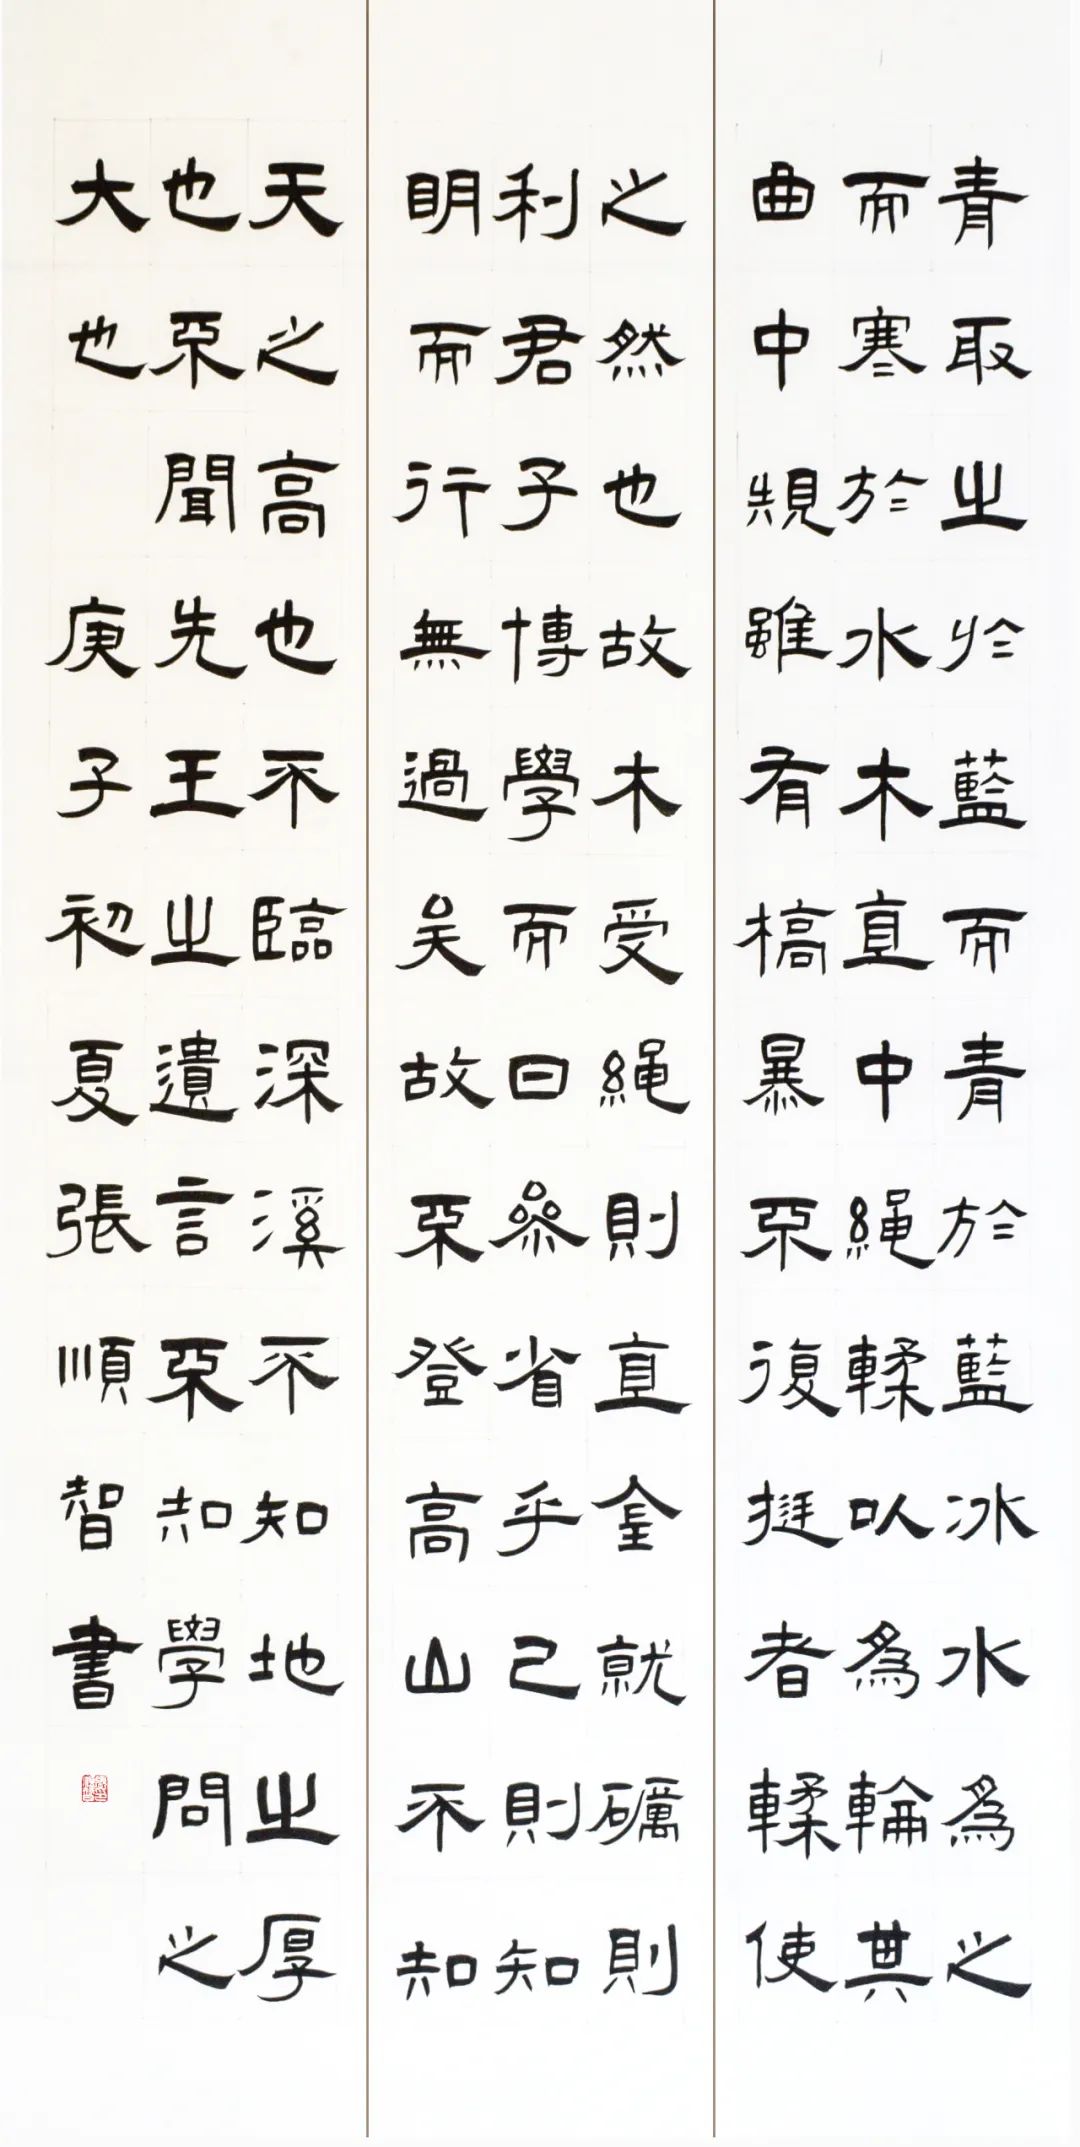 青取之於藍而青於藍冰水為之
而寒於水木直中繩輮以為輪其
曲中規雖有槁暴不復挺者輮使
之然也故木受繩則直金就礪則
利君子博學而日參省乎己則知
明而行無過矣故不登高山不知
天之高也不臨深溪不知地之厚
也不聞先王之遺言不知學問之
大也
庚子初夏張順智書